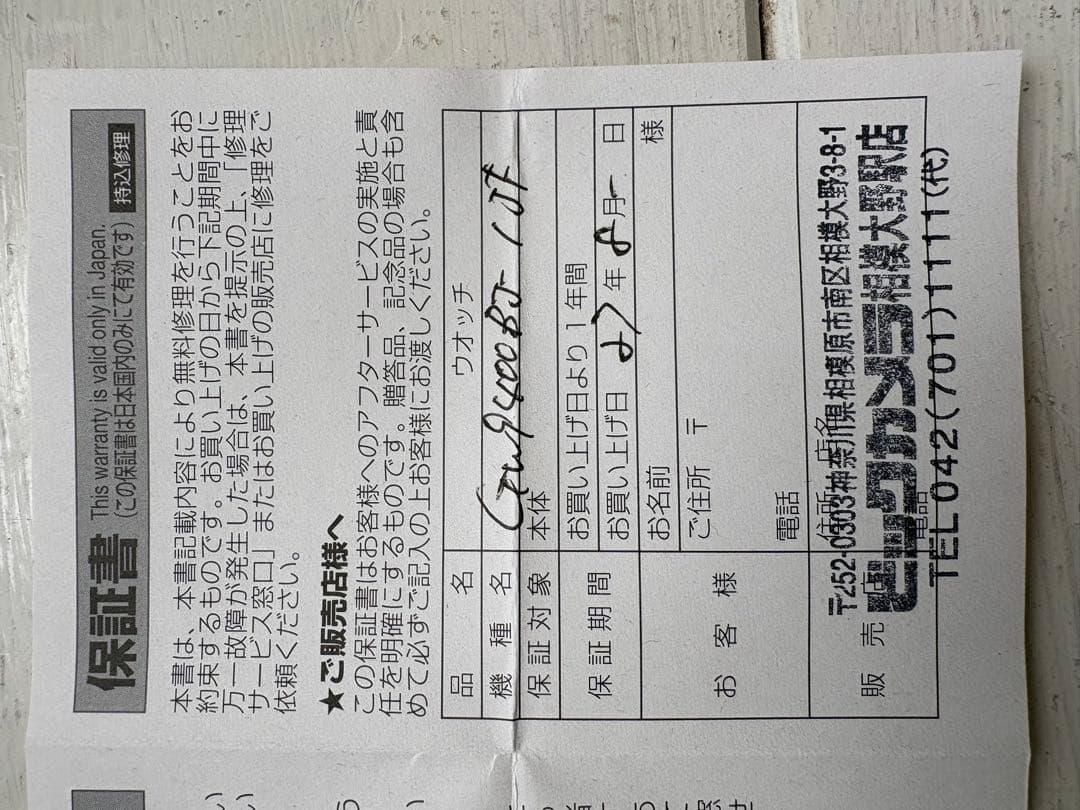 保証書 This warranty is valid only in Japan.
(この保証書は日本国内のみにて有効です) 持込修理
本書は、本書記載内容により無料修理を行うことをお
約束するものです。お買い上げの日から下記期間中に
万一故障が発生した場合は、本書を提示の上、「修理
サービス窓口」またはお買い上げの販売店に修理をご
依頼ください。
★ご販売店様へ
この保証書はお客様へのアフターサービスの実施と責
任を明確にするものです。贈答品、記念品の場合も含
めて必ずご記入の上お客様にお渡しください。
品名 ウオッチ
機種名 GW9400BJ-1JF
保証対象 本体
保証期間 お買い上げ日より1年間
お買い上げ日 27年 8月 日
お客様 お名前 様
ご住所 〒
電話
販売店 住所・店名
〒252-0303神奈川県相模原市南区相模大野3-8-1
ビックカメラ相模大野駅店
電話
TEL042(701)1111(代)